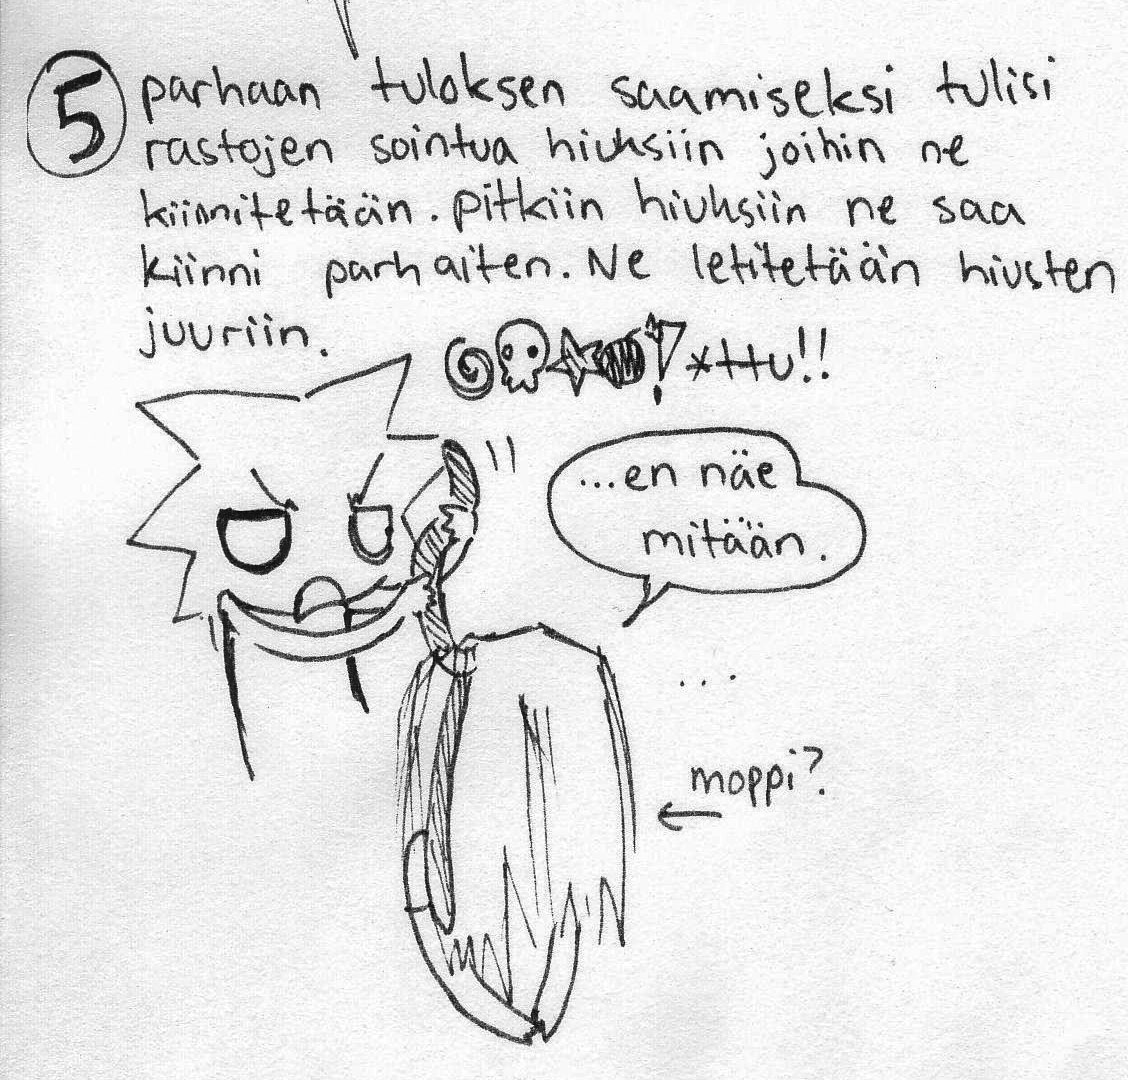 5 parhaan tuloksen saamiseksi tulisi
rastojen sointua hiuksiin joihin ne
kiinnitetään. pitkiin hiuksiin ne saa
kiinni parhaiten. Ne letitetään hiusten
juuriin.
*ttu!!
...en näe
mitään.
...
moppi?